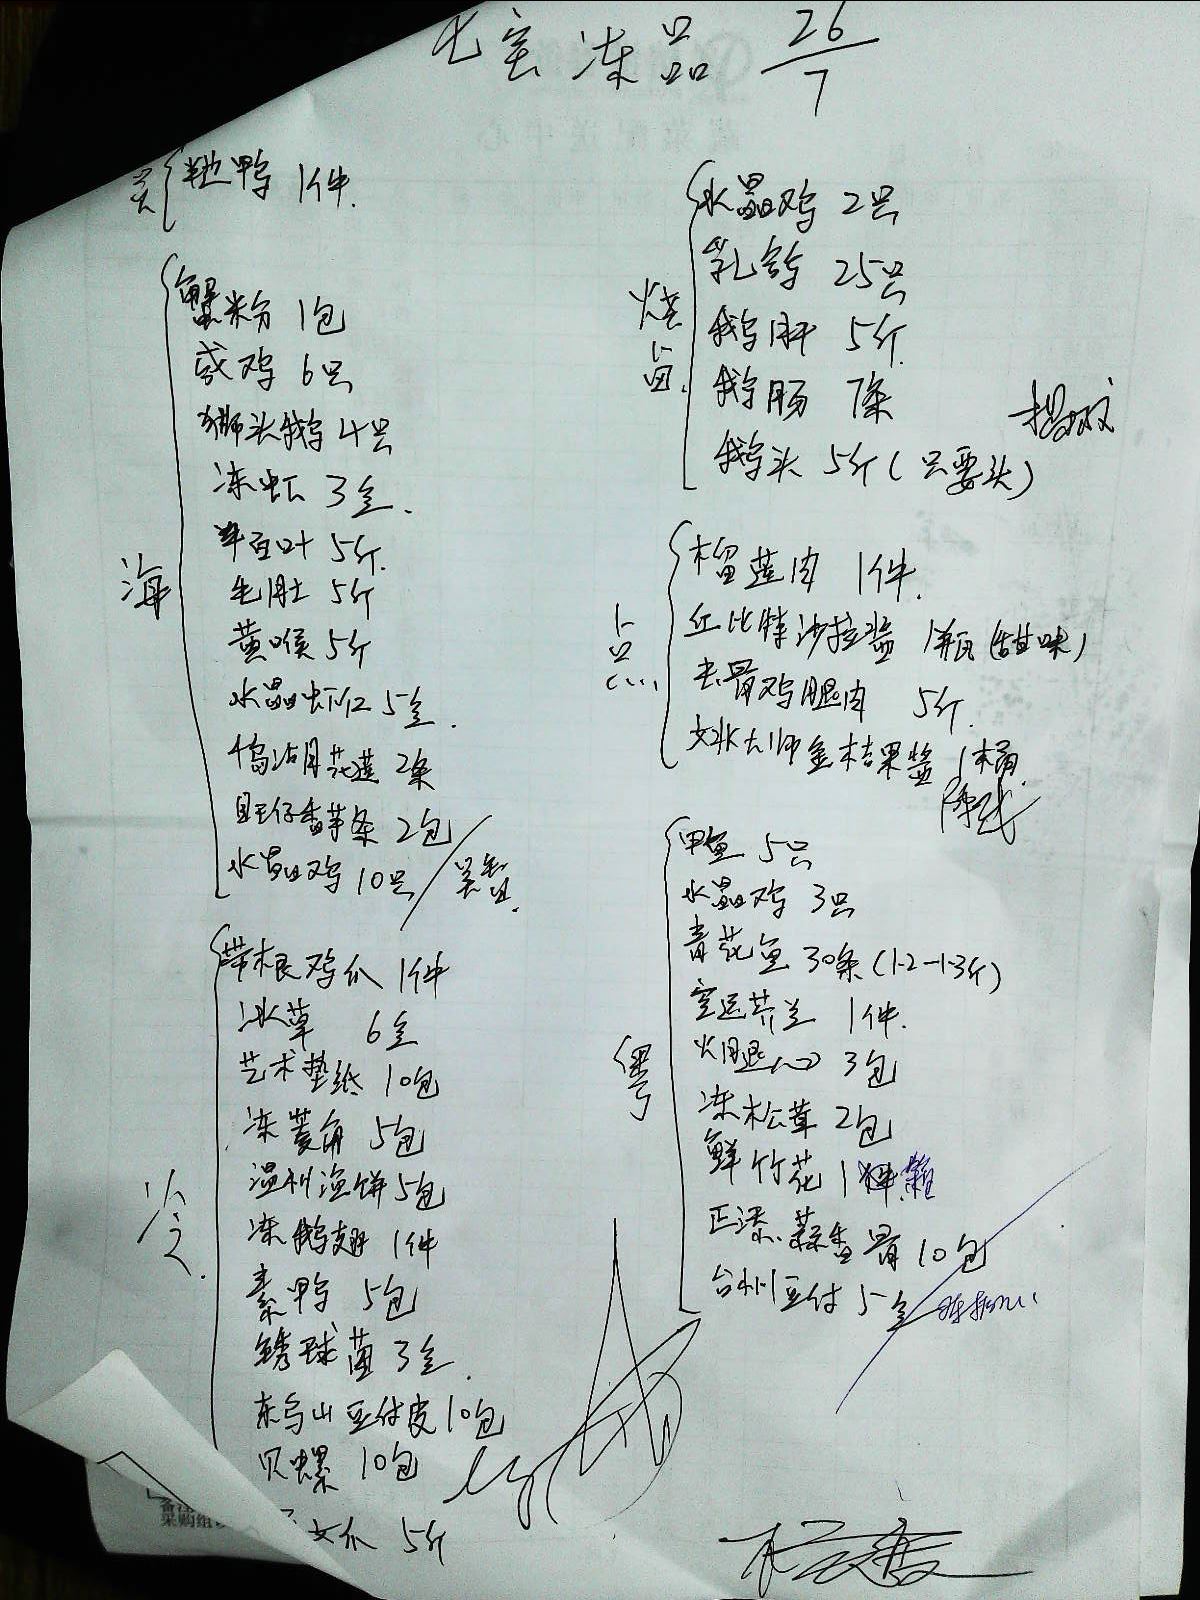 七宝冻品 26/7
羌
鸭 1件.
海
蟹粉 1包
咸鸡 6只
狮头鹅 4只
冻虾 3盒.
牛百叶 5斤.
毛肚 5斤
黄喉 5斤
水晶虾 5盒.
花莲 2条
旺仔香芋条 2包
水晶鸡 10只
冷.
带根鸡爪 1件
冰草 6盒
艺术垫纸 10包
冻菱角 5包
温州渔饼 5包
冻鹅翅 1件
素鸭 5包
锈球菌 3盒.
东乌山豆付皮 10包
贝螺 10包
爪 5斤
烧卤.
水晶鸡 2只
乳鸽 25只
鹅肝 5斤.
鹅肠 7条
鹅头 5斤(只要头)
上点
榴莲肉 1件.
丘比特沙拉酱 1瓶(甜味)
去骨鸡腿肉 5斤.
大师金桔果酱 1桶.
粤
甲鱼 5只
水晶鸡 3只
青花鱼 30条(1.2-1.3斤)
空运芥兰 1件.
火腿心 3包
冻松茸 2包
鲜竹花 1箱
正添蒜香骨 10包
台州豆付 5盒
采购组